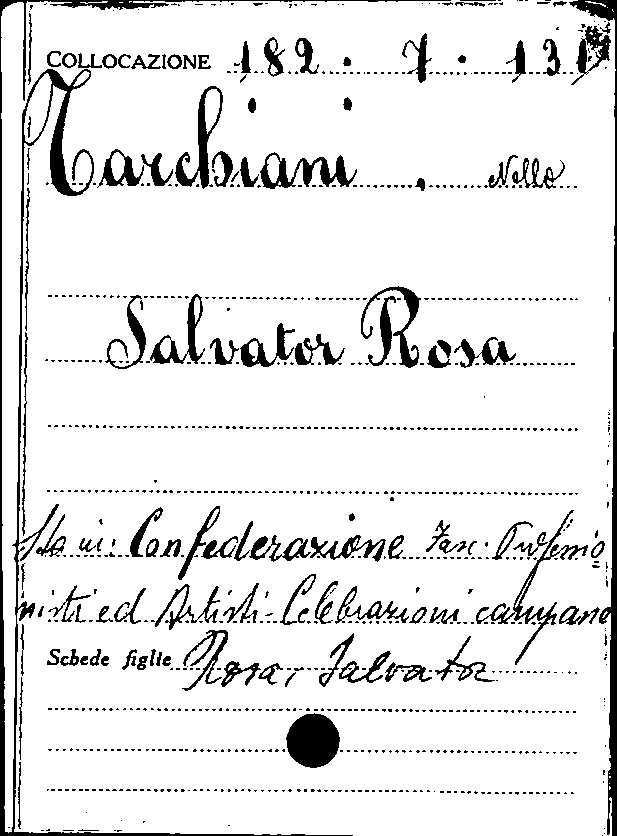 COLLOCAZIONE 182 . 7 . 131
Tarchiani , Nello
Salvator Rosa
Sta in: Confederazione Fasc. Professio
nisti ed Artisti - Celebrazioni campane
Schede figlie Rosa, Salvator